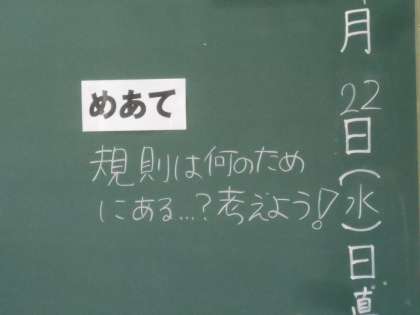 月22日(水)日直
めあて
規則は何のため
にある…?考えよう!